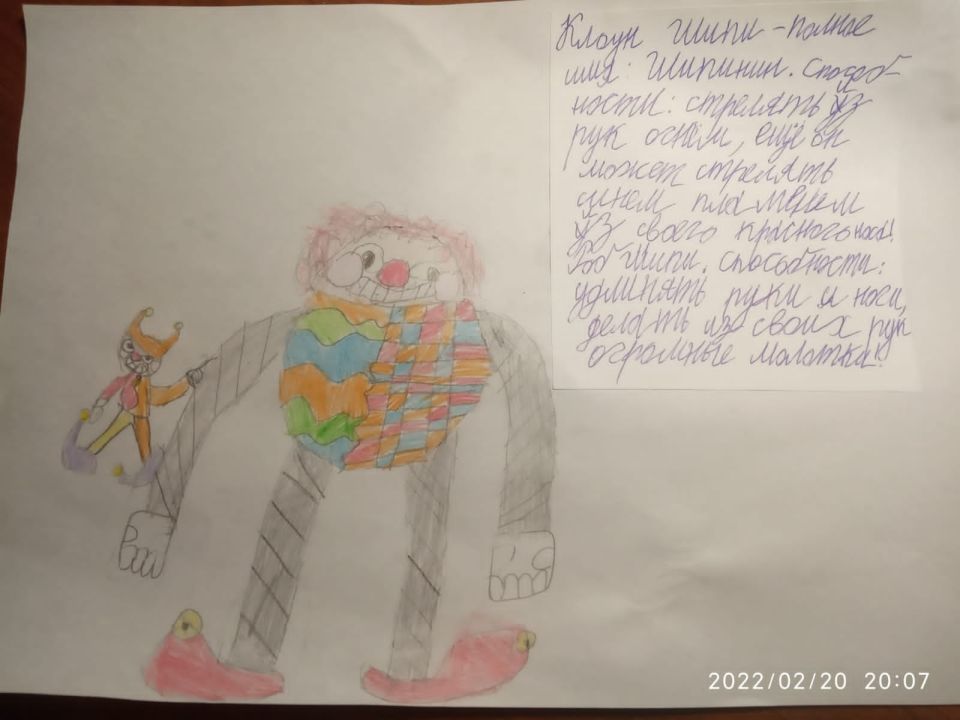 Клоун Шипи - полное
имя: Шипинин. Способ-
ности: стрелять из
рук огнём, ещё он
может стрелять
синем пламенем
из своего красного носа!
Шипи. способности:
удлинять руки и ноги,
делать из своих рук
огромные молотки!
2022/02/20 20:07